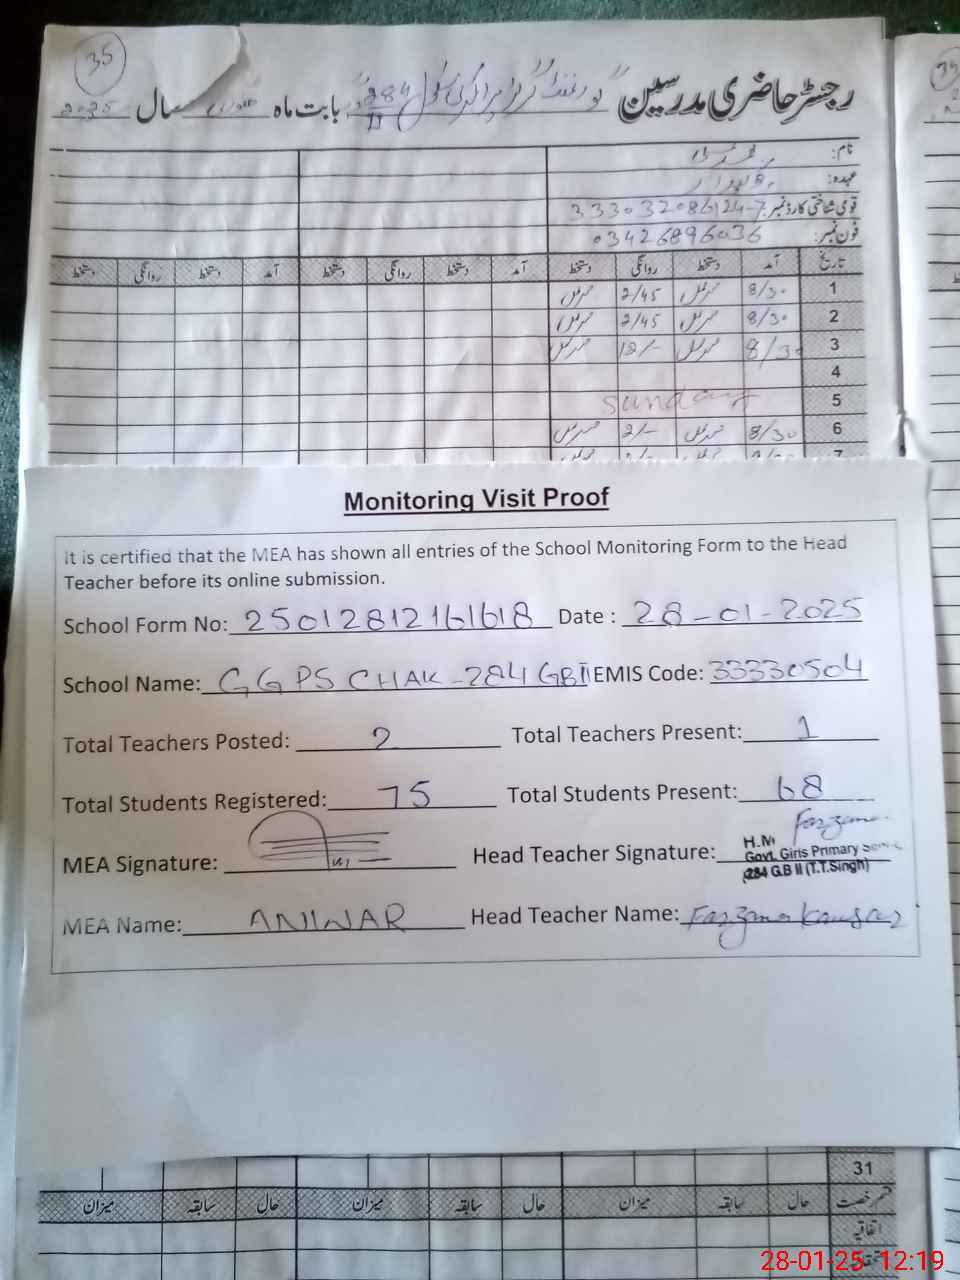 35
رجسٹر حاضری مدرسین گورنمنٹ گرلز پرائمری سکول 284 II بابت ماہ جنوری سال 2025
نام:
عہدہ:
قومی شناختی کارڈ نمبر: 333032086124-7
فون نمبر: 03426896036
تاریخ آمد دستخط روانگی دستخط آمد دستخط روانگی دستخط آمد دستخط روانگی دستخط
1 8/30 2/45
2 8/30 2/45
3 8/30 12/-
4
5 sunday
6 8/30 2/-
7
Monitoring Visit Proof
It is certified that the MEA has shown all entries of the School Monitoring Form to the Head
Teacher before its online submission.
School Form No: 25012812161618 Date : 28-01-2025
School Name: GGPS CHAK-284 GBII EMIS Code: 33330504
Total Teachers Posted: 2 Total Teachers Present: 1
Total Students Registered: 75 Total Students Present: 68
Farzana
MEA Signature: Head Teacher Signature: H.M
Govt. Girls Primary
284 G.B II (T.T.Singh)
MEA Name: ANWAR Head Teacher Name: Farzana Kausar
31
قسم رخصت حال سابقہ میزان حال سابقہ میزان حال سابقہ میزان
اتفاقیہ
28-01-25 12:19